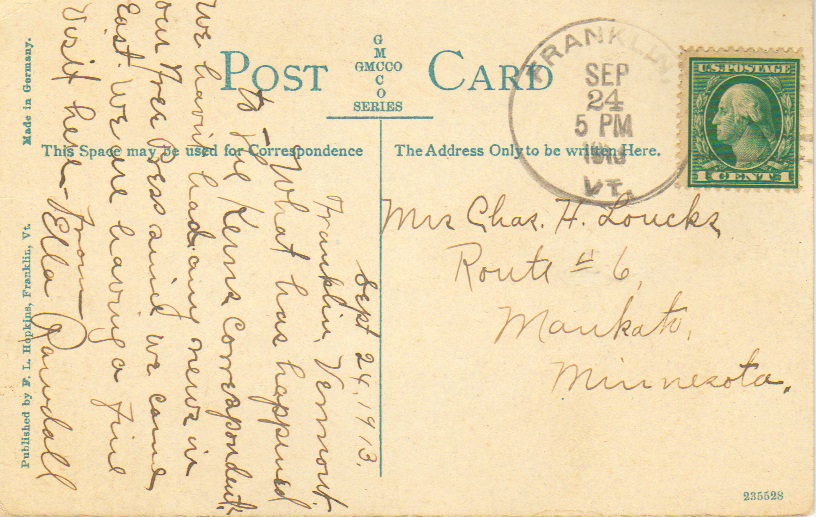 POST CARD
G
M
GMCCO
C
O
SERIES
This Space may be used for Correspondence
The Address Only to be written Here.
FRANKLIN
SEP
24
5 PM
1913
VT.
U.S. POSTAGE
1 CENT 1
Sept 24, 1913.
Franklin, Vermont
What has happened
to the Kerns correspondent.
We havin't had any news in
our Free Press since we came
East. We are having a fine
visit here. From
Ella Randall
Mrs Chas. H. Loucks
Route # 6,
Mankato,
Minnesota.
Made in Germany.
Published by F. L. Hopkins, Franklin, Vt.
235528